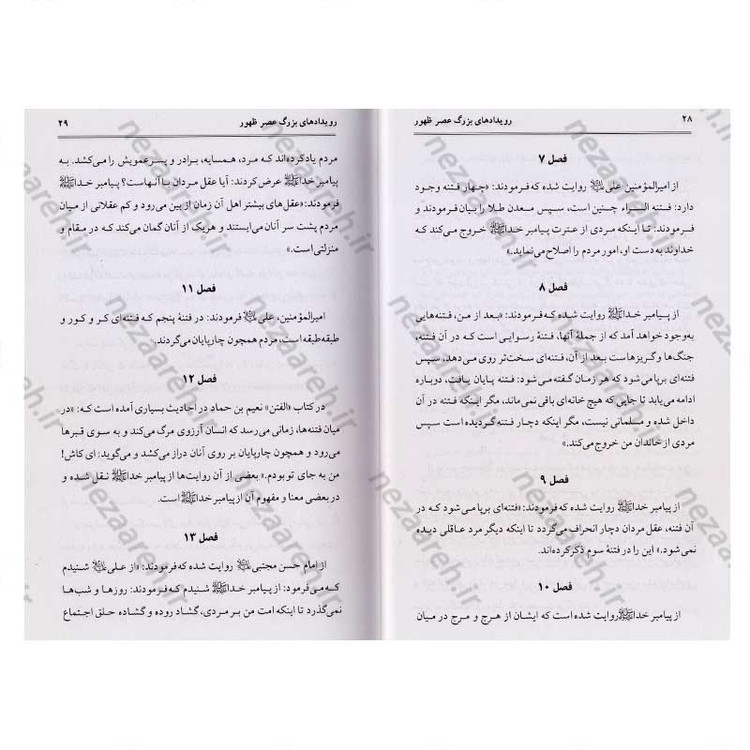 ۲۸ رویدادهای بزرگ عصر ظهور
فصل ۷
از امیرالمؤمنین علی ﷷ روایت شده که فرمودند: «چهار فتنه وجود
دارد: فتنه السراء چنین است، سپس معدن طلا را بیان فرمودند و
فرمودند: تا اینکه مردی از عترت پیامبر خداﷺ خروج می‌کند که
خداوند به دست او، امور مردم را اصلاح می‌نماید.»
فصل ۸
از پیامبر خداﷺ روایت شده که فرمودند: «بعد از من، فتنه‌هایی
به‌وجود خواهد آمد که از جملهٔ آنها، فتنهٔ رسوایی است که در آن فتنه،
جنگ‌ها و گریزهاست بعد از آن، فتنه‌ای سخت‌تر روی می‌دهد، سپس
فتنه‌ای برپا می‌شود که هر زمان گفته می‌شود: فتنه پایان یافت، دوباره
ادامه می‌یابد تا جایی که هیچ خانه‌ای باقی نمی‌ماند، مگر اینکه فتنه در آن
داخل شده و مسلمانی نیست، مگر اینکه دچار فتنه گردیده است سپس
مردی از خاندان من خروج می‌کند.»
فصل ۹
از پیامبر خداﷺ روایت شده که فرمودند: «فتنه‌ای برپا می‌شود که در
آن فتنه، عقل مردان دچار انحراف می‌گردد تا اینکه دیگر مرد عاقلی دیده
نمی‌شود.» این را در فتنهٔ سوم ذکر کرده‌اند.
فصل ۱۰
از پیامبر خداﷺ روایت شده است که ایشان از هرج و مرج در میان
رویدادهای بزرگ عصر ظهور ۲۹
مردم یاد کرده‌اند که مرد، همسایه، برادر و پسرعمویش را می‌کشد. به
پیامبر خداﷺ عرض کردند: آیا عقل مردان با آنهاست؟ پیامبر خداﷺ
فرمودند: «عقل‌های بیشتر اهل آن زمان از بین می‌رود و کم عقلانی از میان
مردم پشت سر آنان می‌ایستند و هریک از آنان گمان می‌کند که در مقام و
منزلتی است.»
فصل ۱۱
امیرالمؤمنین، علی ﷷ فرمودند: در فتنهٔ پنجم که فتنه‌ای کر و کور و
طبقه طبقه است، مردم همچون چارپایان می‌گردند.
فصل ۱۲
در کتاب «الفتن» نعیم بن حماد در احادیث بسیاری آمده است که: «در
میان فتنه‌ها، زمانی می‌رسد که انسان آرزوی مرگ می‌کند و به سوی قبرها
می‌رود و همچون چارپایان بر روی آنان دراز می‌کشد و می‌گوید: ای کاش!
من به جای تو بودم.» بعضی از آن روایت‌ها از پیامبر خداﷺ نقل شده و
در بعضی معنا و مفهوم آن از پیامبر خداﷺ است.
فصل ۱۳
از امام حسن مجتبی ﷷ روایت شده که فرمودند: «از علی ﷷ شنیدم
که می‌فرمود: از پیامبر خداﷺ شنیدم که فرمودند: روزها و شب‌ها
نمی‌گذرد تا اینکه امت من بر مردی، گشاد روده و گشاده حلق اجتماع
nezaareh.ir